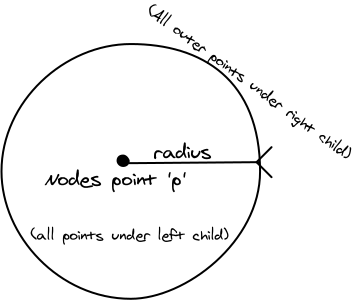 (All outer points under right child)
radius
Nodes point 'p'
(all points under left child)